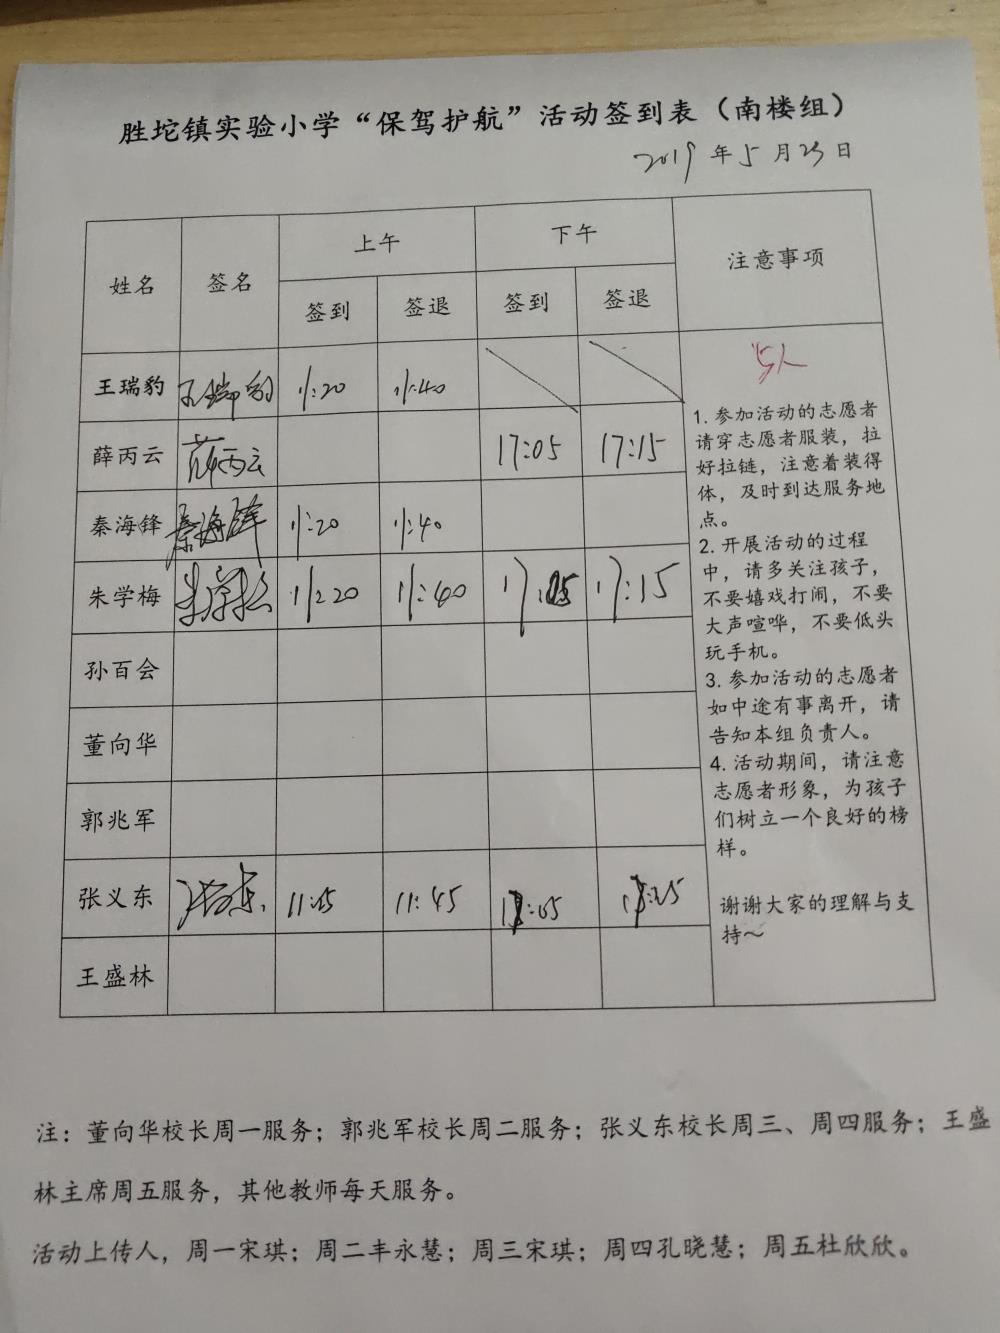 胜坨镇实验小学“保驾护航”活动签到表（南楼组）
2019 年 5 月 23 日
姓名 签名 上午 下午 注意事项
签到 签退 签到 签退
王瑞豹 王瑞豹 11:20 11:40
薛丙云 薛丙云 17:05 17:15
秦海锋 秦海锋 11:20 11:40
朱学梅 朱学梅 11:20 11:40 17:05 17:15
孙百会
董向华
郭兆军
张义东 张义东 11:15 11:45
王盛林
5人
1. 参加活动的志愿者
请穿志愿者服装，拉
好拉链，注意着装得
体，及时到达服务地
点。
2. 开展活动的过程
中，请多关注孩子，
不要嬉戏打闹，不要
大声喧哗，不要低头
玩手机。
3. 参加活动的志愿者
如中途有事离开，请
告知本组负责人。
4. 活动期间，请注意
志愿者形象，为孩子
们树立一个良好的榜
样。
谢谢大家的理解与支
持～
注：董向华校长周一服务；郭兆军校长周二服务；张义东校长周三、周四服务；王盛
林主席周五服务，其他教师每天服务。
活动上传人，周一宋琪；周二丰永慧；周三宋琪；周四孔晓慧；周五杜欣欣。